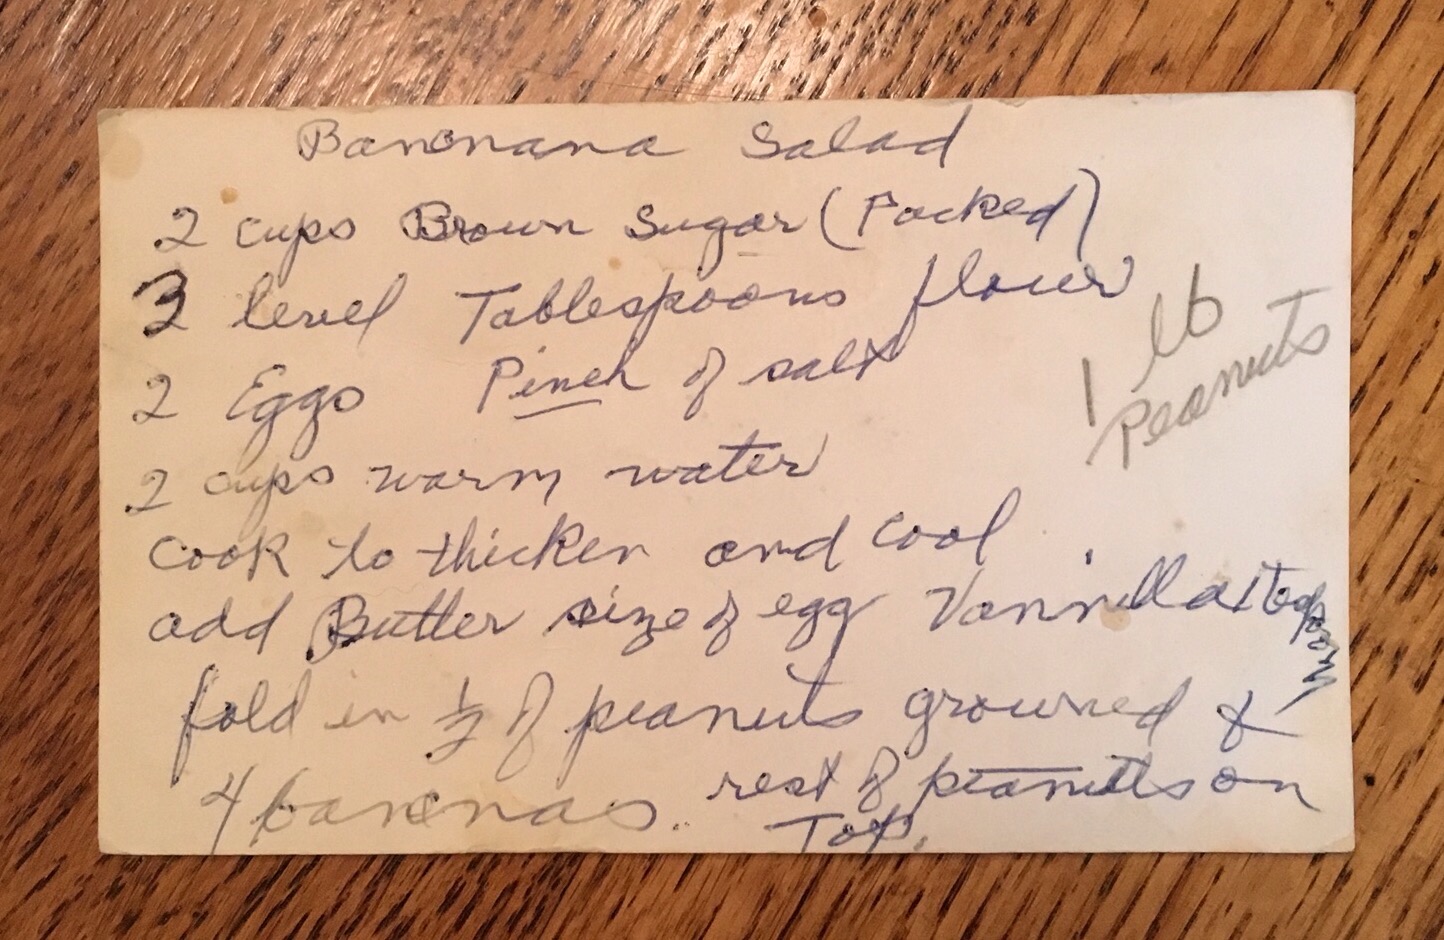 Bananana Salad
2 cups Brown Sugar (Packed)
3 level Tablespoons flour
2 Eggs Pinch of salt
1 lb
Peanuts
2 cups warm water
Cook to thicken and cool
add Butter size of egg Vannilla 1 teaspoon
fold in 1/2 of peanuts grouned &
4 bananas. rest of peanutts on
Top.